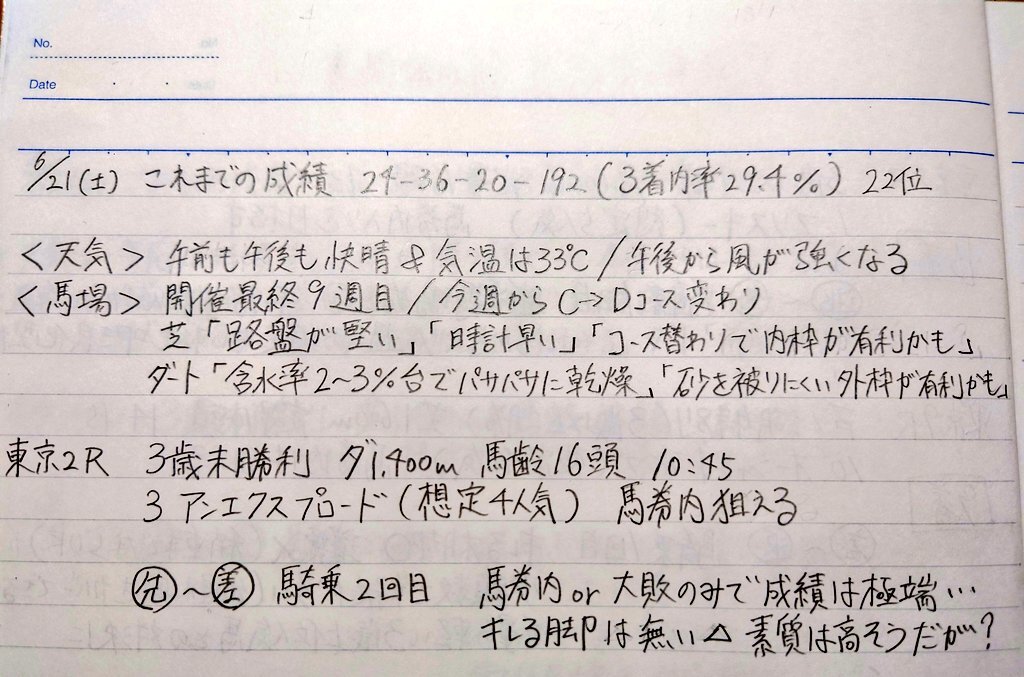 No.
Date
6/21(土) これまでの成績 24-36-20-192 (3着内率29.4%) 22位
<天気> 午前も午後も快晴&気温は33℃/午後から風が強くなる
<馬場> 開催最終9週目/今週からC→Dコース変わり
芝「路盤が堅い」「時計早い」「コース替わりで内枠が有利かも」
ダート「含水率2~3%台でパサパサに乾燥」「砂を被りにくい外枠が有利かも」
東京2R 3歳未勝利 ダ1,400m 馬齢16頭 10:45
3 アンエクスプロード(想定4人気) 馬券内狙える
先~差 騎乗2回目 馬券内or大敗のみで成績は極端…
キレる脚は無い△ 素質は高そうだが?